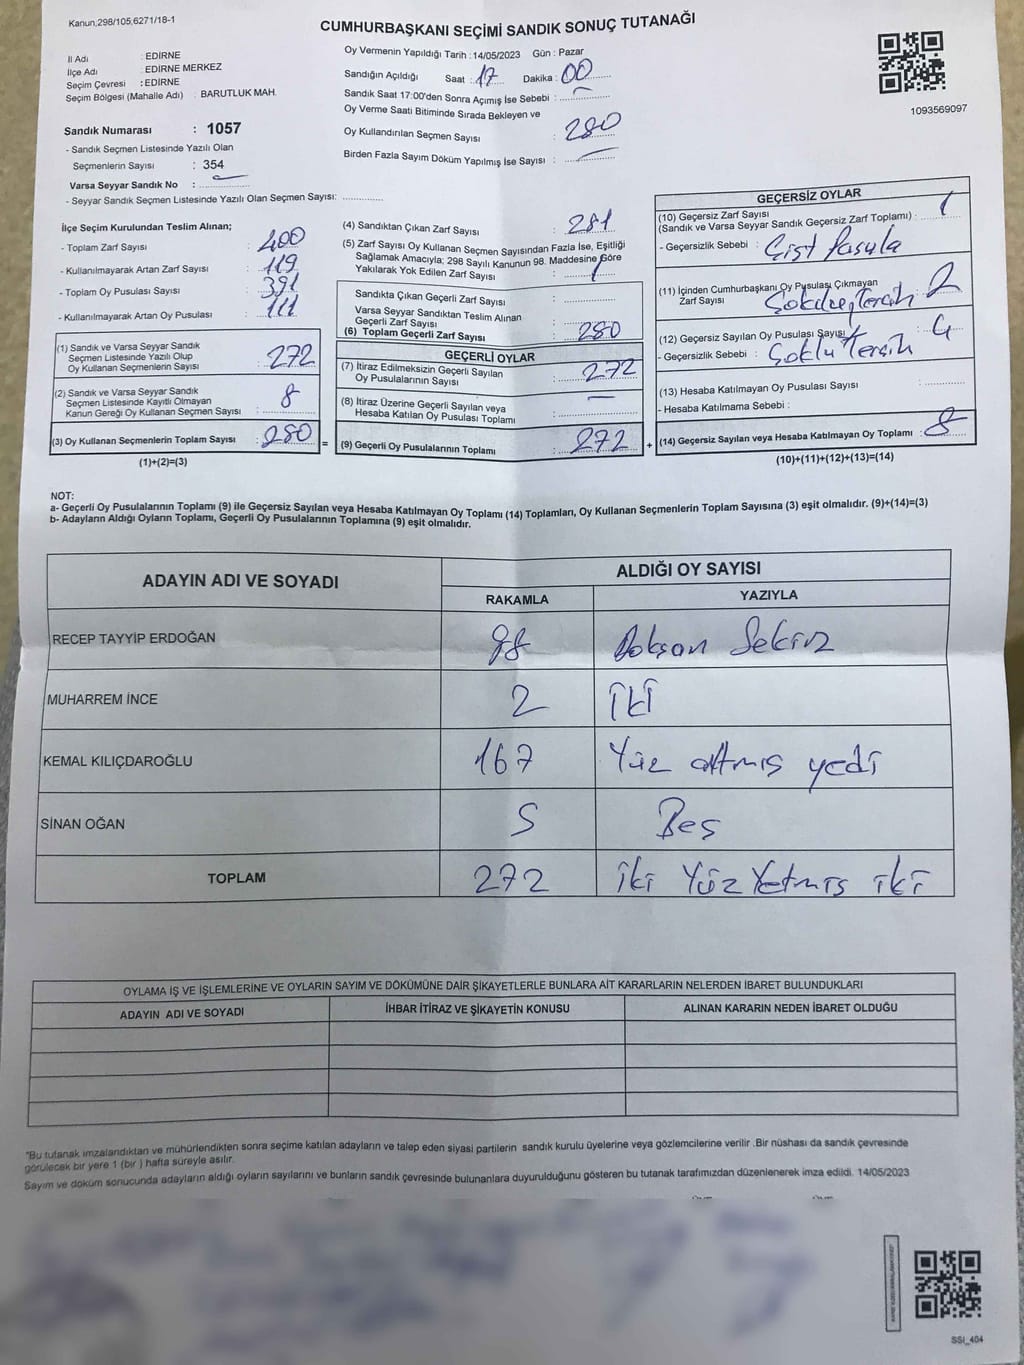 Kanun,298/105,6271/18-1
CUMHURBAŞKANI SEÇİMİ SANDIK SONUÇ TUTANAĞI
İl Adı : EDİRNE
İlçe Adı : EDİRNE MERKEZ
Seçim Çevresi : EDİRNE
Seçim Bölgesi (Mahalle Adı) : BARUTLUK MAH.
Sandık Numarası : 1057
- Sandık Seçmen Listesinde Yazılı Olan
Seçmenlerin Sayısı : 354
Varsa Seyyar Sandık No :
- Seyyar Sandık Seçmen Listesinde Yazılı Olan Seçmen Sayısı:
Oy Vermenin Yapıldığı Tarih : 14/05/2023 Gün : Pazar
Sandığın Açıldığı Saat : 17 Dakika : 00
Sandık Saat 17:00'den Sonra Açımış İse Sebebi :
Oy Verme Saati Bitiminde Sırada Bekleyen ve
Oy Kullandırılan Seçmen Sayısı : 280
Birden Fazla Sayım Döküm Yapılmış İse Sayısı :
1093569097
İlçe Seçim Kurulundan Teslim Alınan;
- Toplam Zarf Sayısı : 400
- Kullanılmayarak Artan Zarf Sayısı : 119
- Toplam Oy Pusulası Sayısı : 391
- Kullanılmayarak Artan Oy Pusulası : 111
(1) Sandık ve Varsa Seyyar Sandık
Seçmen Listesinde Yazılı Olup
Oy Kullanan Seçmenlerin Sayısı : 272
(2) Sandık ve Varsa Seyyar Sandık
Seçmen Listesinde Kayıtlı Olmayan
Kanun Gereği Oy Kullanan Seçmen Sayısı : 8
(3) Oy Kullanan Seçmenlerin Toplam Sayısı : 280 =
(1)+(2)=(3)
(4) Sandıktan Çıkan Zarf Sayısı : 281
(5) Zarf Sayısı Oy Kullanan Seçmen Sayısından Fazla İse, Eşitliği
Sağlamak Amacıyla; 298 Sayılı Kanunun 98. Maddesine Göre
Yakılarak Yok Edilen Zarf Sayısı : 1
Sandıkta Çıkan Geçerli Zarf Sayısı :
Varsa Seyyar Sandıktan Teslim Alınan
Geçerli Zarf Sayısı :
(6) Toplam Geçerli Zarf Sayısı : 280
GEÇERLİ OYLAR
(7) İtiraz Edilmeksizin Geçerli Sayılan
Oy Pusulalarının Sayısı : 272
(8) İtiraz Üzerine Geçerli Sayılan veya
Hesaba Katılan Oy Pusulası Toplamı :
(9) Geçerli Oy Pusulalarının Toplamı : 272 +
GEÇERSİZ OYLAR
(10) Geçersiz Zarf Sayısı
(Sandık ve Varsa Seyyar Sandık Geçersiz Zarf Toplamı) : 1
- Geçersizlik Sebebi : Çist Pusula
(11) İçinden Cumhurbaşkanı Oy Pusulası Çıkmayan
Zarf Sayısı : 2
(12) Geçersiz Sayılan Oy Pusulası Sayısı : 4
- Geçersizlik Sebebi : Şoklu Tersih
(13) Hesaba Katılmayan Oy Pusulası Sayısı :
- Hesaba Katılmama Sebebi :
(14) Geçersiz Sayılan veya Hesaba Katılmayan Oy Toplamı : 8
(10)+(11)+(12)+(13)=(14)
NOT:
a- Geçerli Oy Pusulalarının Toplamı (9) ile Geçersiz Sayılan veya Hesaba Katılmayan Oy Toplamı (14) Toplamları, Oy Kullanan Seçmenlerin Toplam Sayısına (3) eşit olmalıdır. (9)+(14)=(3)
b- Adayların Aldığı Oyların Toplamı, Geçerli Oy Pusulalarının Toplamına (9) eşit olmalıdır.
ADAYIN ADI VE SOYADI
ALDIĞI OY SAYISI
RAKAMLA YAZIYLA
RECEP TAYYİP ERDOĞAN 98 Doksan Sekiz
MUHARREM İNCE 2 İki
KEMAL KILIÇDAROĞLU 167 Yüz altmış yedi
SİNAN OĞAN 5 Beş
TOPLAM 272 iki Yüz Yetmiş iki
OYLAMA İŞ VE İŞLEMLERİNE VE OYLARIN SAYIM VE DÖKÜMÜNE DAİR ŞİKAYETLERLE BUNLARA AİT KARARLARIN NELERDEN İBARET BULUNDUKLARI
ADAYIN ADI VE SOYADI İHBAR İTİRAZ VE ŞİKAYETİN KONUSU ALINAN KARARIN NEDEN İBARET OLDUĞU
"Bu tutanak imzalandıktan ve mühürlendikten sonra seçime katılan adayların ve talep eden siyasi partilerin sandık kurulu üyelerine veya gözlemcilerine verilir .Bir nüshası da sandık çevresinde
görülecek bir yere 1 (bir ) hafta süreyle asılır.
Sayım ve döküm sonucunda adayların aldığı oyların sayılarını ve bunların sandık çevresinde bulunanlara duyurulduğunu gösteren bu tutanak tarafımızdan düzenlenerek imza edildi. 14/05/2023
SSI_404